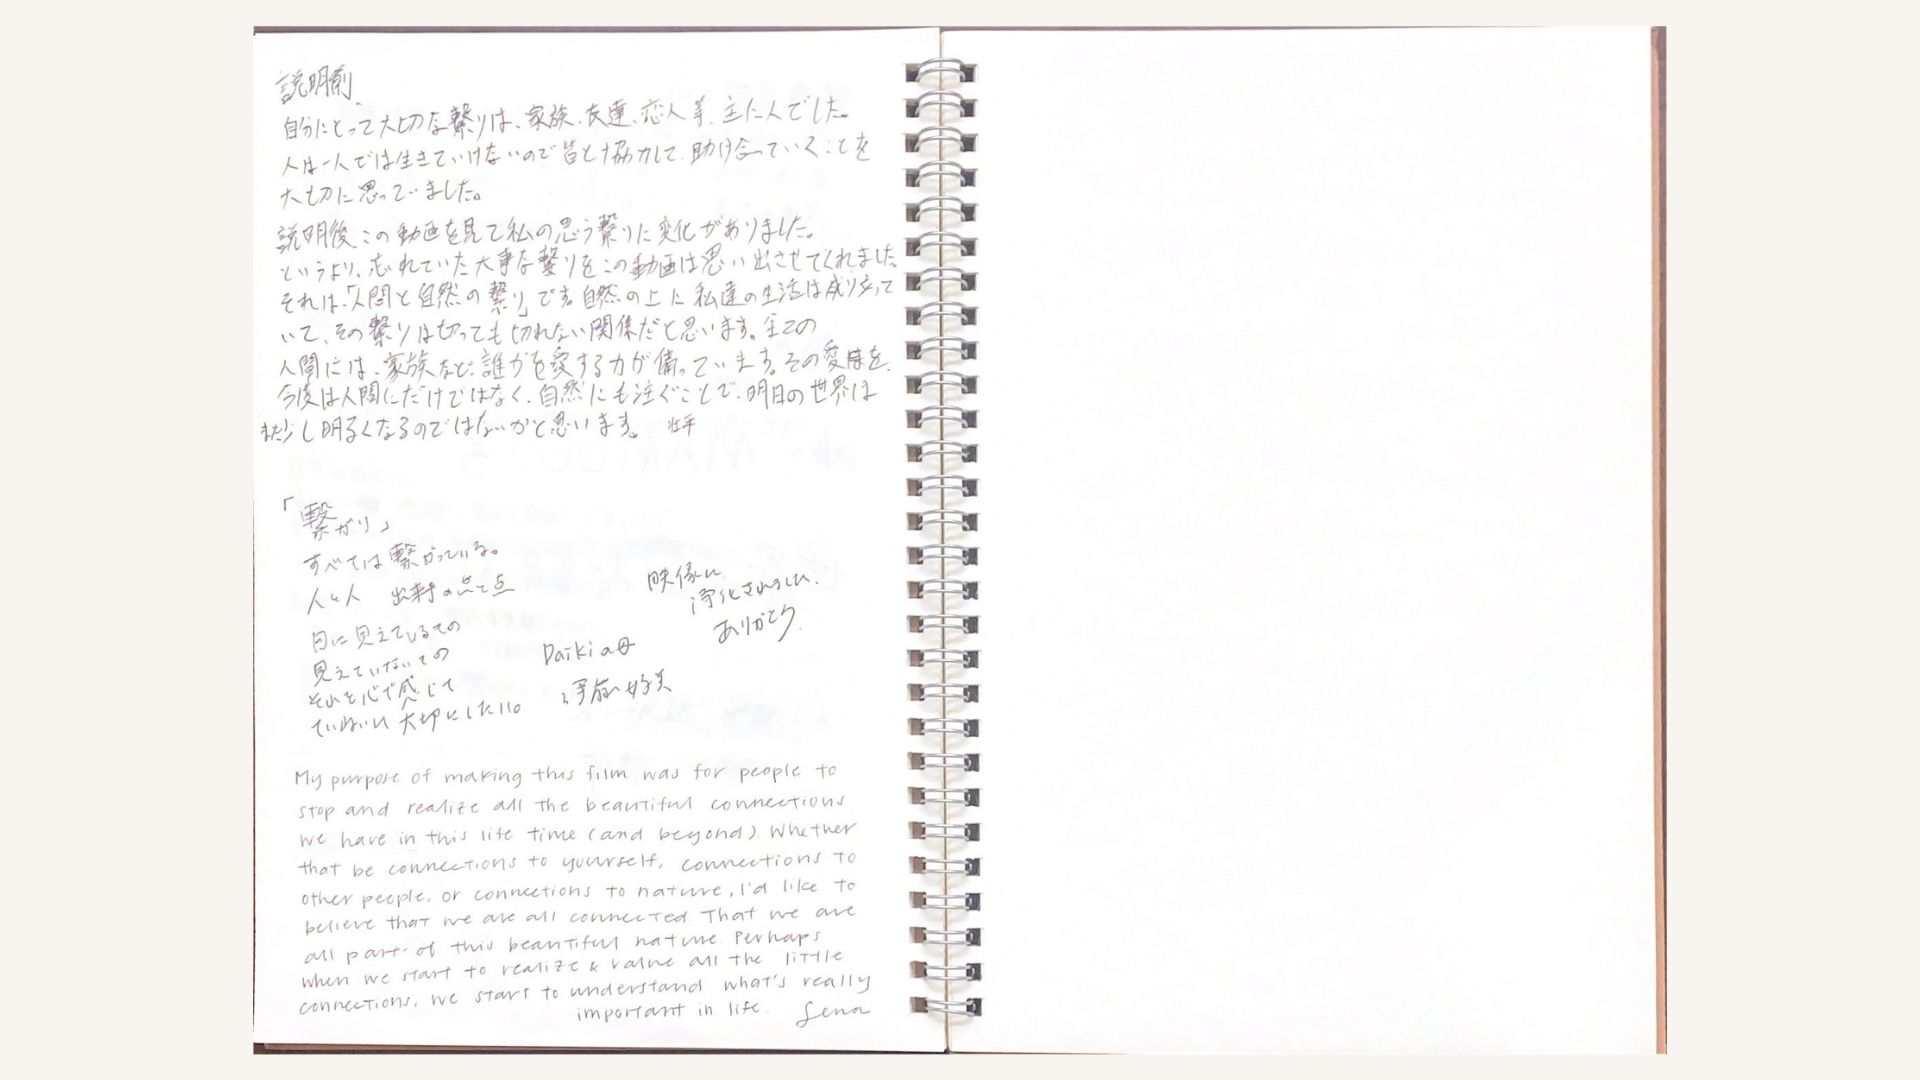 説明前
自分にとって大切な繋りは、家族、友達、恋人等、主に人でした。
人は一人では生きていけないので皆と協力して、助け合っていくことを
大切に思っていました。
説明後 この動画を見て私の思う繋りに変化がありました。
というより、忘れていた大事な繋りをこの動画は思い出させてくれました。
それは、「人間と自然の繋り」です。自然の上に私達の生活は成り立って
いて、その繋りは切っても切れない関係だと思います。全ての
人間には、家族など、誰かを愛する力が備っています。その愛情を、
今度は人間にだけではなく、自然にも注ぐことで、明日の世界は
また少し明るくなるのではないかと思います。
「繋がり」
すべては繋がっている。
人と人 出来事の点と点
目に見えているもの
見えていないもの
それを心で感じて
ていねいに大切にしたい。
映像に
浄化されました。
ありがとう
Daikiの母
My purpose of making this film was for people to
stop and realize all the beautiful connections
we have in this life time (and beyond). Whether
that be connections to yourself, connections to
other people, or connections to nature, I'd like to
believe that we are all connected. That we are
all part of this beautiful nature. Perhaps
when we start to realize & value all the little
connections, we start to understand what's really
important in life. Sena